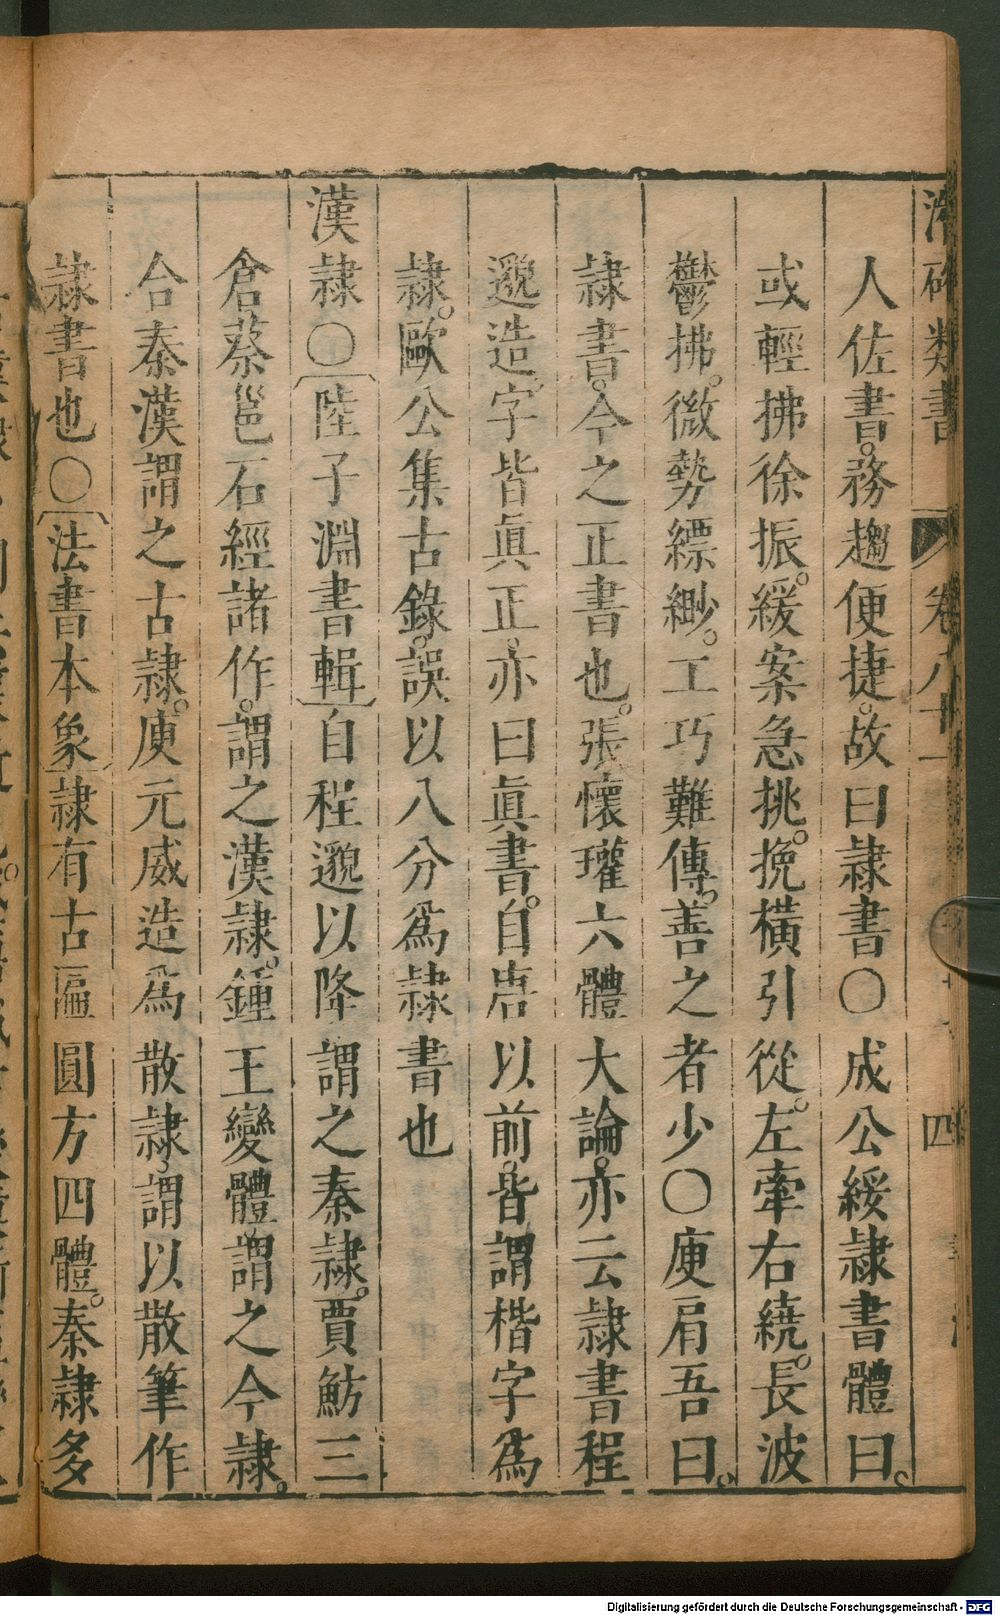 潛確類書 卷八十一 四
人佐書。務趨便捷。故曰隷書〇成公綏隷書體曰。
或輕拂徐振。緩案急挑。挽橫引從。左牽右繞。長波
鬱拂。微勢縹緲。工巧難傳。善之者少〇庾肩吾曰。
隷書。今之正書也。張懷瓘六體大論。亦云隷書程
邈造。字皆眞正。亦曰眞書。自唐以前。皆謂楷字爲
隷。歐公集古錄。誤以八分爲隷書也
漢隷〇〔陸子淵書輯〕自程邈以降謂之秦隷。賈魴三
倉蔡邕石經諸作。謂之漢隷。鍾王變體謂之今隷。
合秦漢謂之古隷。庾元威造爲散隷。謂以散筆作
隷書也〇〔法書本象〕隷有古匾圓方四體。秦隷多
Digitalisierung gefördert durch die Deutsche Forschungsgemeinschaft - DFG